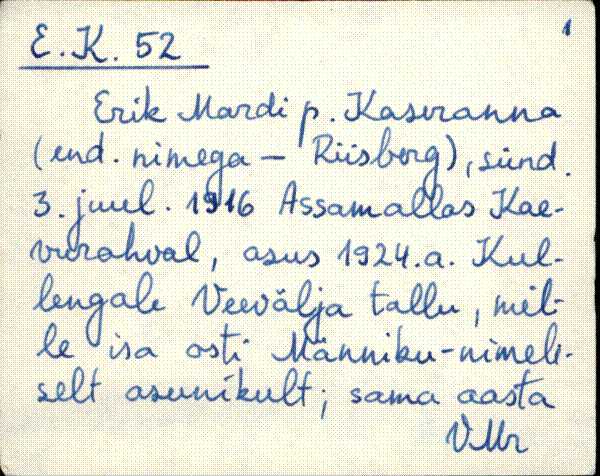 1
E.K. 52
Erik Mardi p. Kaseranna
(end. nimega – Riisberg), sünd.
3. juul. 1916 Assamallas Kae-
vurahval, asus 1924.a. Kul-
lengale Veevälja tallu, mil-
le isa osti Männiku-nimeli-
selt asunikult; sama aasta
VMr